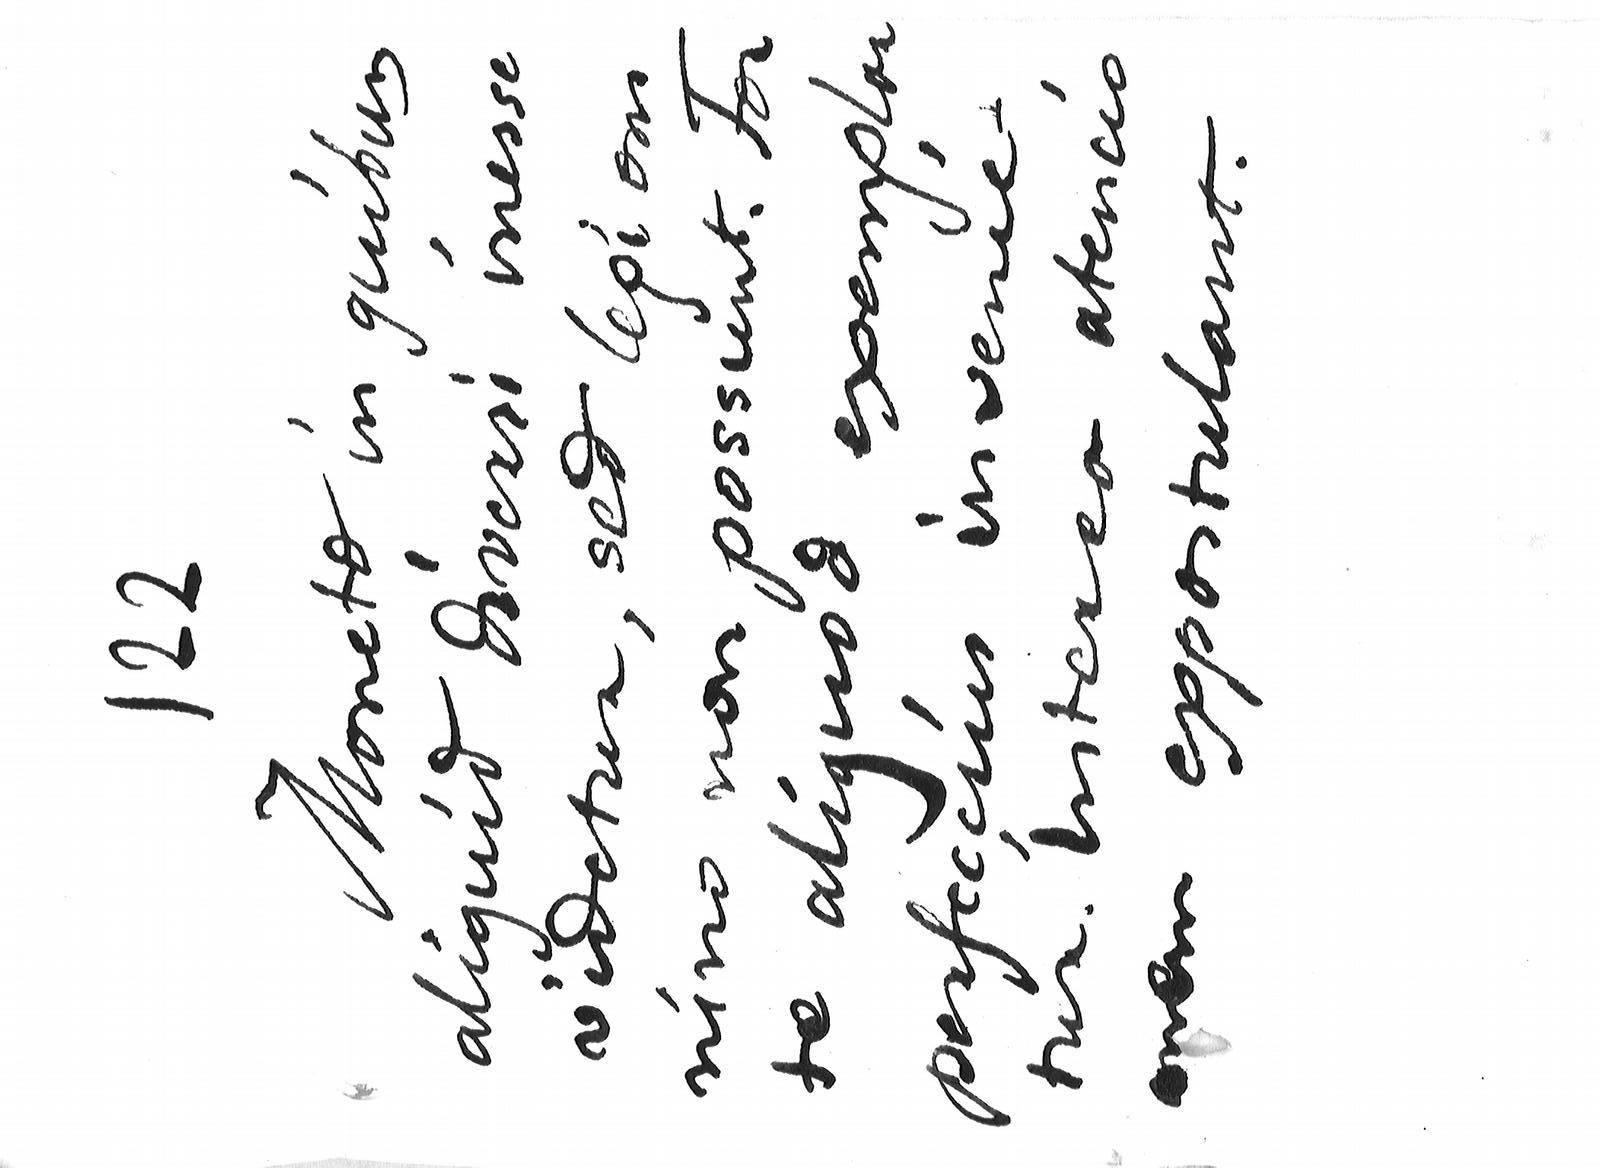 122
Moneta in quibus
aliquid diversi inesse
videtur, sed legi om
nino non possunt. For
te aliquod exemplar
perfeccius invenie-
tur. Interea atencio
nem expostulant.